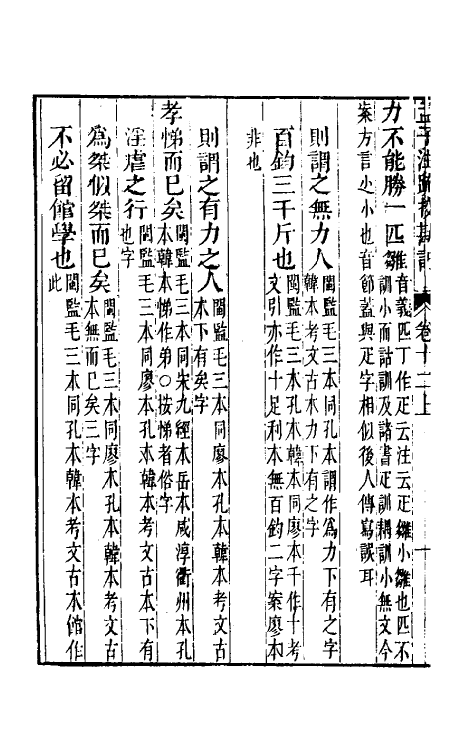 孟子注疏校勘記 卷十二上
力不能勝一匹雛音義匹丁作疋云注云疋雛小雛也匹不訓小而詁訓及諸書疋訓耦訓小無文今
案方言尐小也音節蓋與疋字相似後人傳寫誤耳
則謂之無力人閩監毛三本同孔本謂作爲力下有之字韓本考文古本力下有之字
百鈞三千斤也閩監毛三本孔本韓本同廖本千作十考文引亦作十足利本無百鈞二字案廖本
非也
則謂之有力之人閩監毛三本同廖本孔本韓本考文古本下有矣字
孝悌而已矣閩監毛三本同宋九經本岳本咸淳衢州本孔本韓本悌作弟○按悌者俗字
淫虐之行閩監毛三本同廖本孔本韓本考文古本下有也字
爲桀似桀而已矣閩監毛三本同廖本孔本韓本考文古本無而已矣三字
不必留館學也閩監毛三本同孔本韓本考文古本館作此